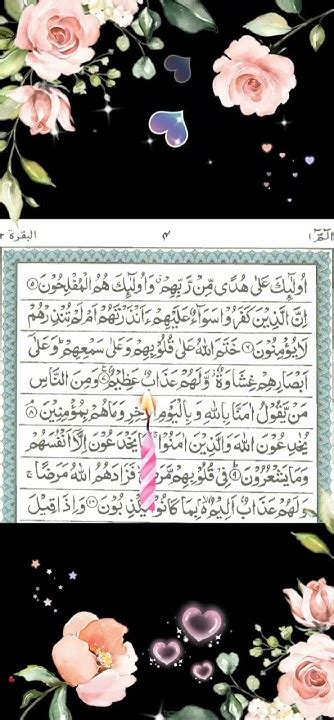 الٓمّٓ ١ ٤ البقرة ٢
اُولٰٓئِكَ عَلٰى هُدًى مِّنْ رَّبِّهِمْ ۗ وَاُولٰٓئِكَ هُمُ الْمُفْلِحُوْنَ ۝٥
اِنَّ الَّذِيْنَ كَفَرُوْا سَوَآءٌ عَلَيْهِمْ ءَاَنْذَرْتَهُمْ اَمْ لَمْ تُنْذِرْهُمْ
لَا يُؤْمِنُوْنَ ۝٦ خَتَمَ اللّٰهُ عَلٰى قُلُوْبِهِمْ وَعَلٰى سَمْعِهِمْ ۗ وَعَلٰٓى
اَبْصَارِهِمْ غِشَاوَةٌ ۖ وَّلَهُمْ عَذَابٌ عَظِيْمٌ ۝٧ وَمِنَ النَّاسِ
مَنْ يَّقُوْلُ اٰمَنَّا بِاللّٰهِ وَبِالْيَوْمِ الْاٰخِرِ وَمَا هُمْ بِمُؤْمِنِيْنَ ۝٨
يُخٰدِعُوْنَ اللّٰهَ وَالَّذِيْنَ اٰمَنُوْا ۚ وَمَا يَخْدَعُوْنَ اِلَّآ اَنْفُسَهُمْ
وَمَا يَشْعُرُوْنَ ۝٩ فِيْ قُلُوْبِهِمْ مَّرَضٌ ۙ فَزَادَهُمُ اللّٰهُ مَرَضًا ۚ
وَلَهُمْ عَذَابٌ اَلِيْمٌ ۢ بِمَا كَانُوْا يَكْذِبُوْنَ ۝١٠ وَاِذَا قِيْلَ